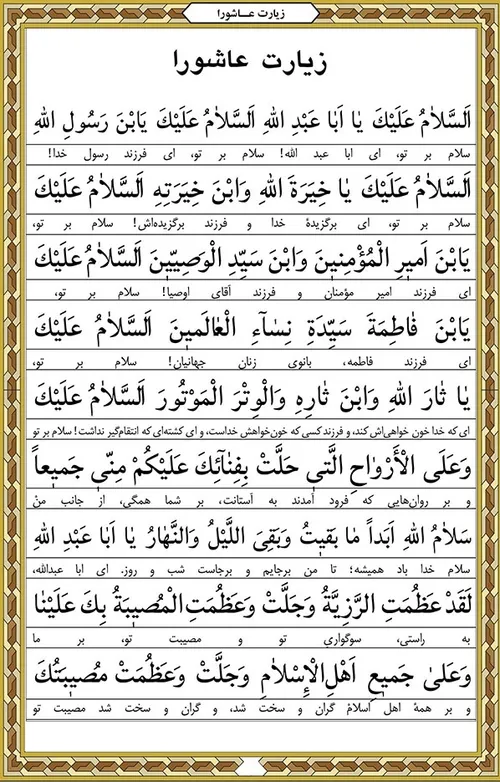 زیارت عـاشورا
زیارت عاشورا
اَلسَّلامُ عَلَيْكَ يا اَبا عَبْدِ اللهِ اَلسَّلامُ عَلَيْكَ يَابْنَ رَسُولِ اللهِ
سلام بر تو، ای ابا عبد الله! سلام بر تو، ای فرزند رسول خدا!
اَلسَّلامُ عَلَيْكَ يا خِيَرَةَ اللهِ وَابْنَ خِيَرَتِهِ اَلسَّلامُ عَلَيْكَ
سلام بر تو، ای برگزیدهٔ خدا و فرزند برگزیده‌اش! سلام بر تو،
يَابْنَ اَميرِ الْمُؤْمِنينَ وَابْنَ سَيِّدِ الْوَصِيّينَ اَلسَّلامُ عَلَيْكَ
ای فرزند امیر مؤمنان و فرزند آقای اوصیا! سلام بر تو،
يَابْنَ فاطِمَةَ سَيِّدَةِ نِسآءِ الْعالَمينَ اَلسَّلامُ عَلَيْكَ
ای فرزند فاطمه، بانوی زنان جهانیان! سلام بر تو،
يا ثارَ اللهِ وَابْنَ ثارِهِ وَالْوِتْرَ الْمَوْتُورَ اَلسَّلامُ عَلَيْكَ
ای که خدا خون خواهی‌اش کند، و فرزند کسی که خون‌خواهش خداست، و ای کشته‌ای که انتقام‌گیر نداشت! سلام بر تو
وَعَلَى الْأَرْواحِ الَّتي حَلَّتْ بِفِنآئِكَ عَلَيْكُمْ مِنّي جَميعاً
و بر روان‌هایی که فرود آمدند به آستانت، بر شما همگی، از جانب من
سَلامُ اللهِ اَبَداً ما بَقيتُ وَبَقِيَ اللَّيْلُ وَالنَّهارُ يا اَبا عَبْدِ اللهِ
سلام خدا باد همیشه؛ تا من برجایم و برجاست شب و روز. ای ابا عبدالله،
لَقَدْ عَظُمَتِ الرَّزِيَّةُ وَجَلَّتْ وَعَظُمَتِ الْمُصيبَةُ بِكَ عَلَيْنا
به راستی، سوگواریِ تو و مصیبت تو، بر ما
وَعَلى جَميعِ اَهْلِ الْإِسْلامِ وَجَلَّتْ وَعَظُمَتْ مُصيبَتُكَ
و بر همهٔ اهل اسلام گران و سخت شد، و گران و سخت شد مصیبت تو